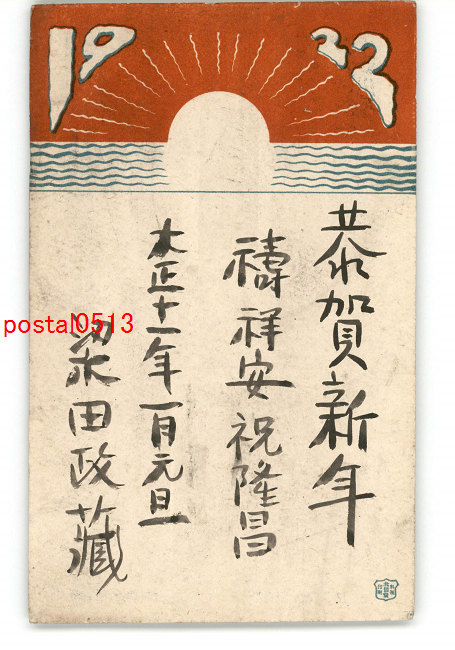 1922
恭賀新年
禱祥安祝隆昌
大正十一年一月元旦
梁田政藏
postal0513